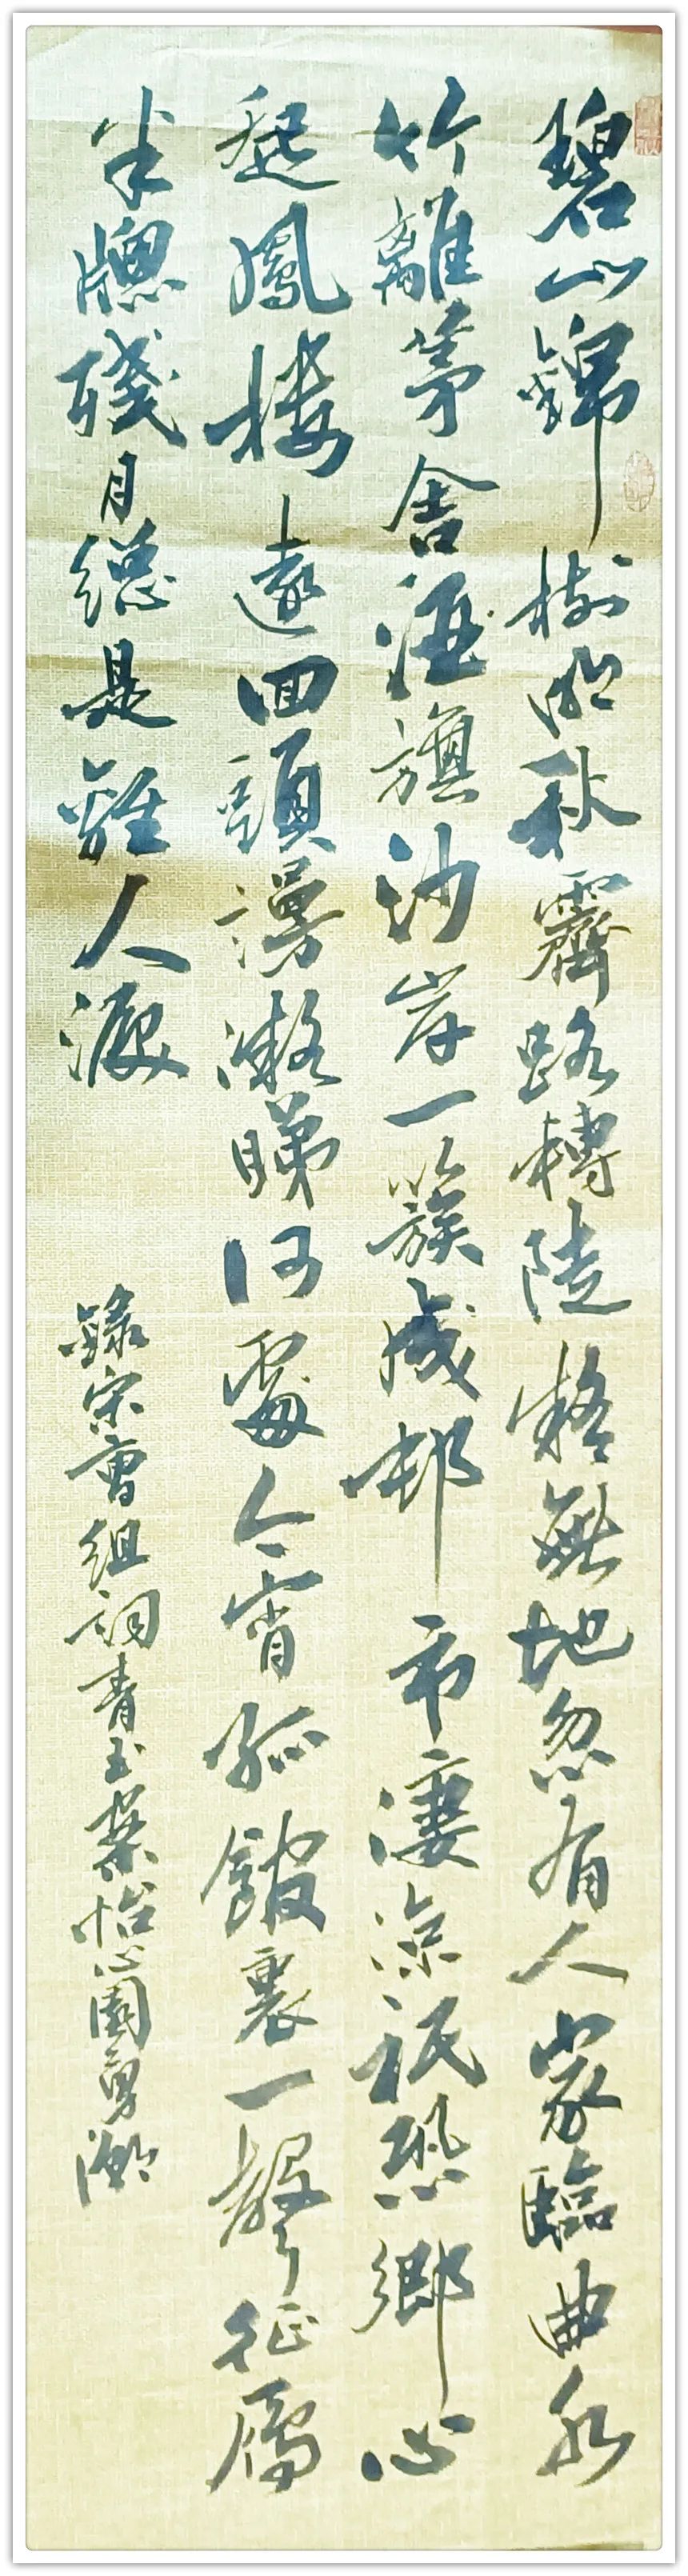 碧山錦樹明秋霽路轉陡疑無地忽有人家臨曲水
竹籬茅舍酒旗沙岸一簇成邨市淒涼祇恐鄉心
起鳳樓遠回頭謾凝睇何處今宵孤館裏一聲征雁
半窻殘月總是離人淚
錄宋曹組詞青玉案怡心園勇潮